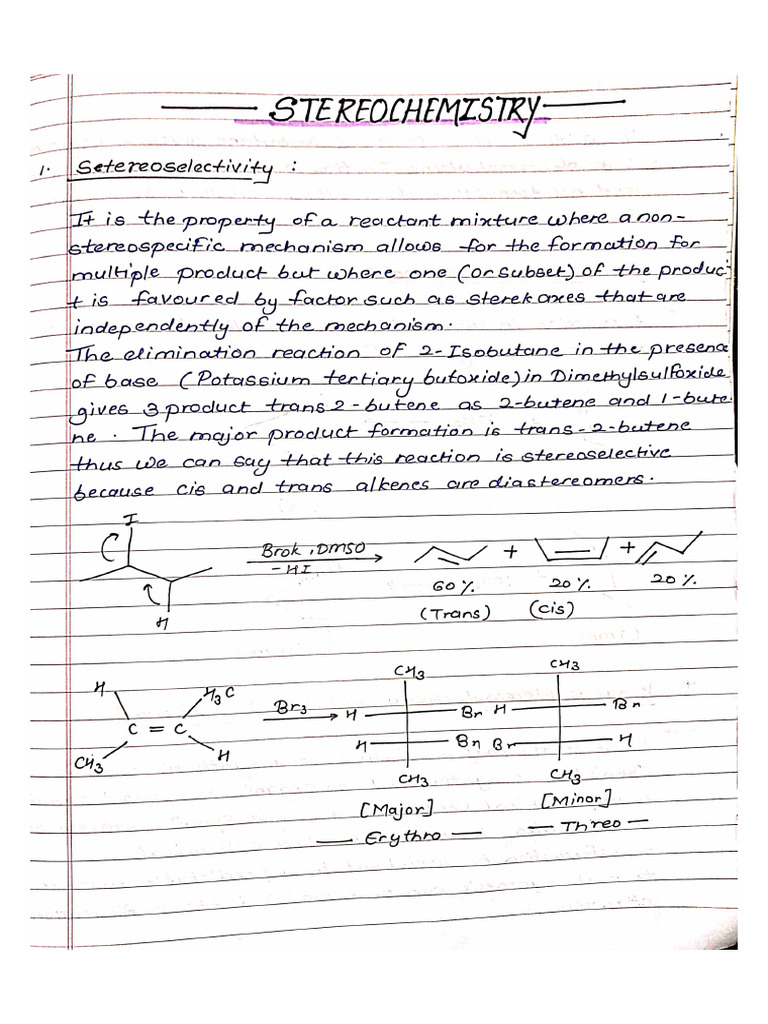 STEREOCHEMISTRY
1. Setereoselectivity :
It is the property of a reactant mixture where a non-
stereospecific mechanism allows for the formation for
multiple product but where one (or subset) of the produc
t is favoured by factor such as sterek axes that are
independently of the mechanism.
The elimination reaction of 2-Isobutane in the presena
of base (Potassium tertiary butoxide) in Dimethylsulfoxide
gives 3 product trans 2-butene as 2-butene and 1-bute
ne. The major product formation is trans-2-butene
thus we can say that this reaction is stereoselective
because cis and trans alkenes are diastereomers.
I
H
Brok, DMSO
-HI
+ +
60%. 20%. 20%.
(Trans) (cis)
H H3C
C = C
CH3 H
Br3
CH3 CH3
H Br H Br
H Br Br H
CH3 CH3
[Major] [Minor]
— Erythro — — Threo —